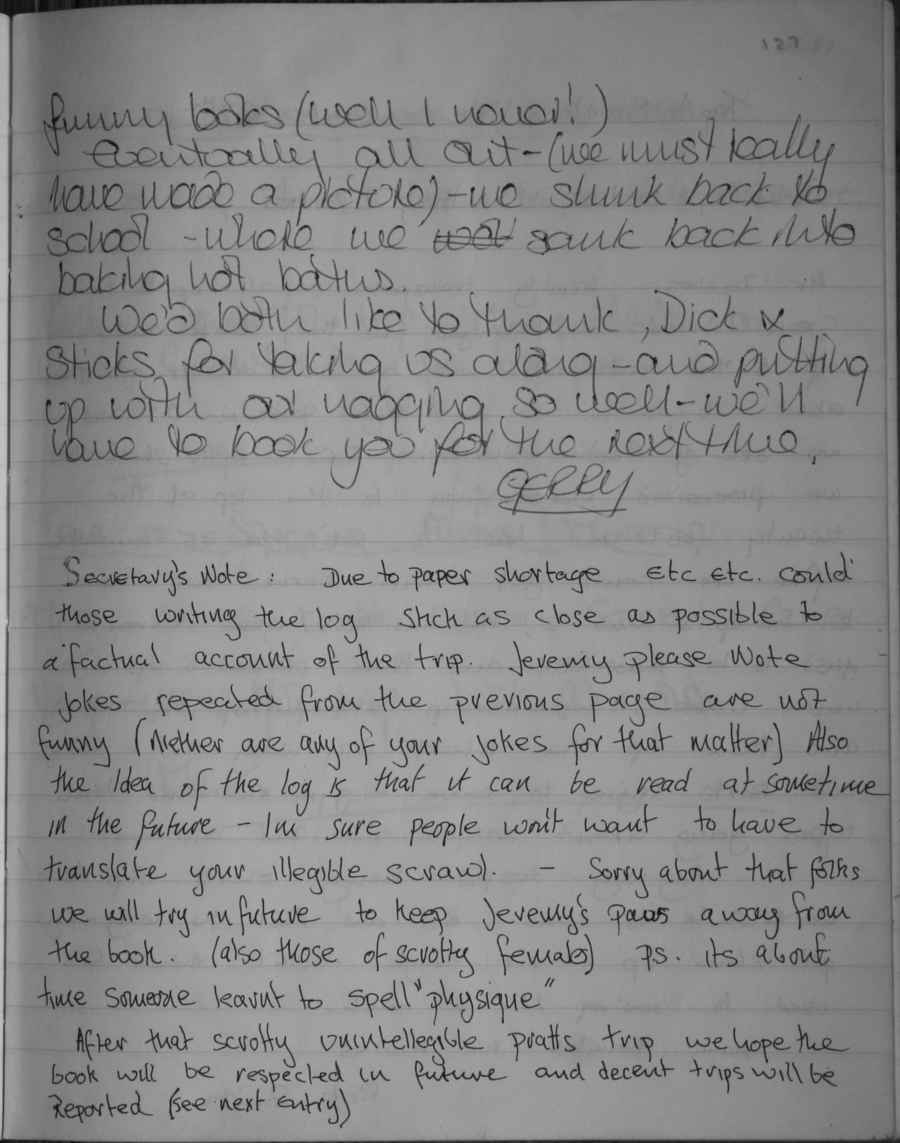 127
funny books (well I never!)
Eventually all out - (we must really
have made a picture) - we slunk back to
school - where we sank back into
baking hot baths.
We'd both like to thank, Dick &
Sticks for taking us along - and putting
up with our nagging so well - we'll
have to book you for the next time,
GERRY
Secretary's Note: Due to paper shortage etc etc. could
those writing the log stick as close as possible to
a factual account of the trip. Jeremy please Note
jokes repeated from the previous page are not
funny (Niether are any of your jokes for that matter) Also
the Idea of the log is that it can be read at sometime
in the future - Im sure people won't want to have to
translate your illegible scrawl. - Sorry about that folks
we will try in future to keep Jeremy's paws away from
the book. (also those of scrotty females) Ps. its about
time someone learnt to spell "physique"
After that scrotty unintellegible pratts trip we hope the
book will be respected in future and decent trips will be
Reported (see next entry)